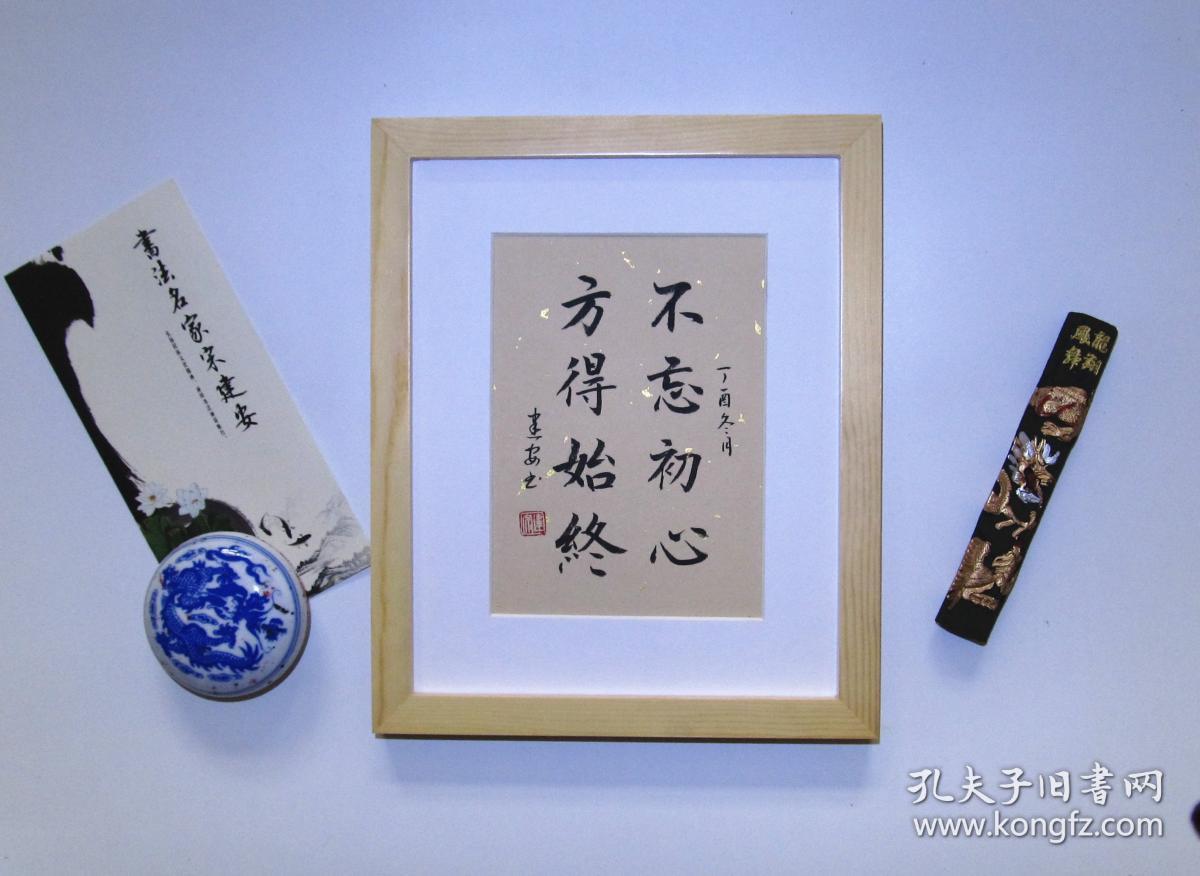 書法名家宗建安
不忘初心
方得始終
丁酉冬月
建安书
龍翔
鳳舞
孔夫子旧書网
www.kongfz.com